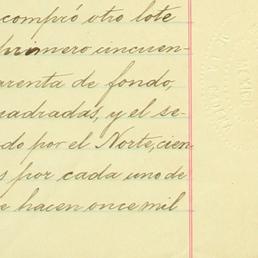 compró otro lote
primero uncuen-
arenta de fondo,
uadradas, y el se-
do por el Norte, cien
s por cada uno de
e hacen once mil